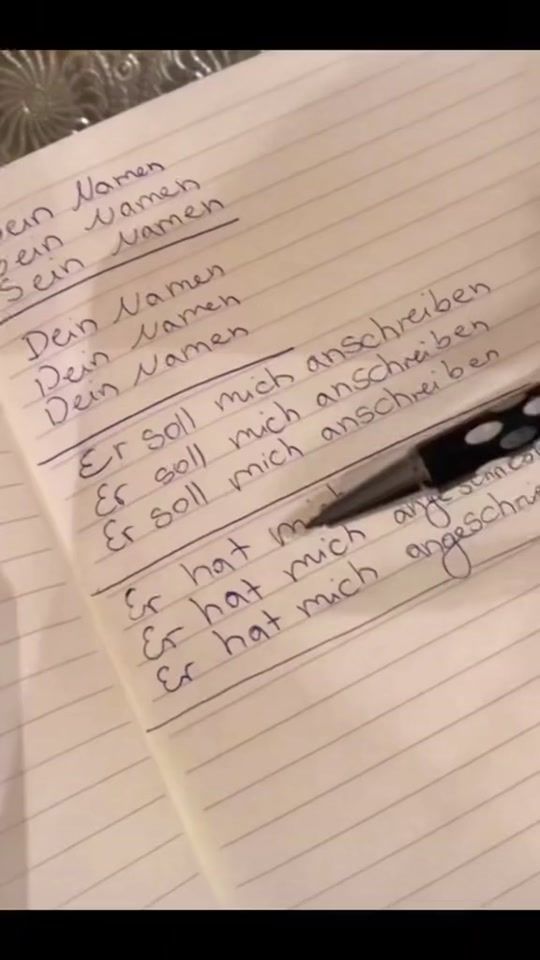 Sein Namen
Sein Namen
Sein Namen
Dein Namen
Dein Namen
Dein Namen
Er soll mich anschreiben
Er soll mich anschreiben
Er soll mich anschreiben
Er hat
Er hat mich
Er hat mich